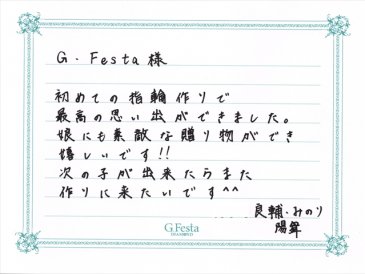 G.Festa様
初めての指輪作りで
最高の思い出ができました。
娘にも素敵な贈り物ができ
嬉しいです!!
次の子が出来たらまた
作りに来たいです^^
良輔・みのり
G.Festa